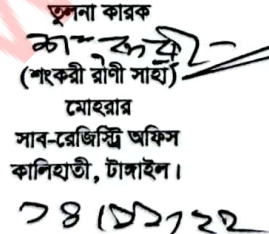 তুলনা কারক
(শংকরী রাণী সাহা)
মোহরার
সাব-রেজিস্ট্রি অফিস
কালিহাতী, টাঙ্গাইল।